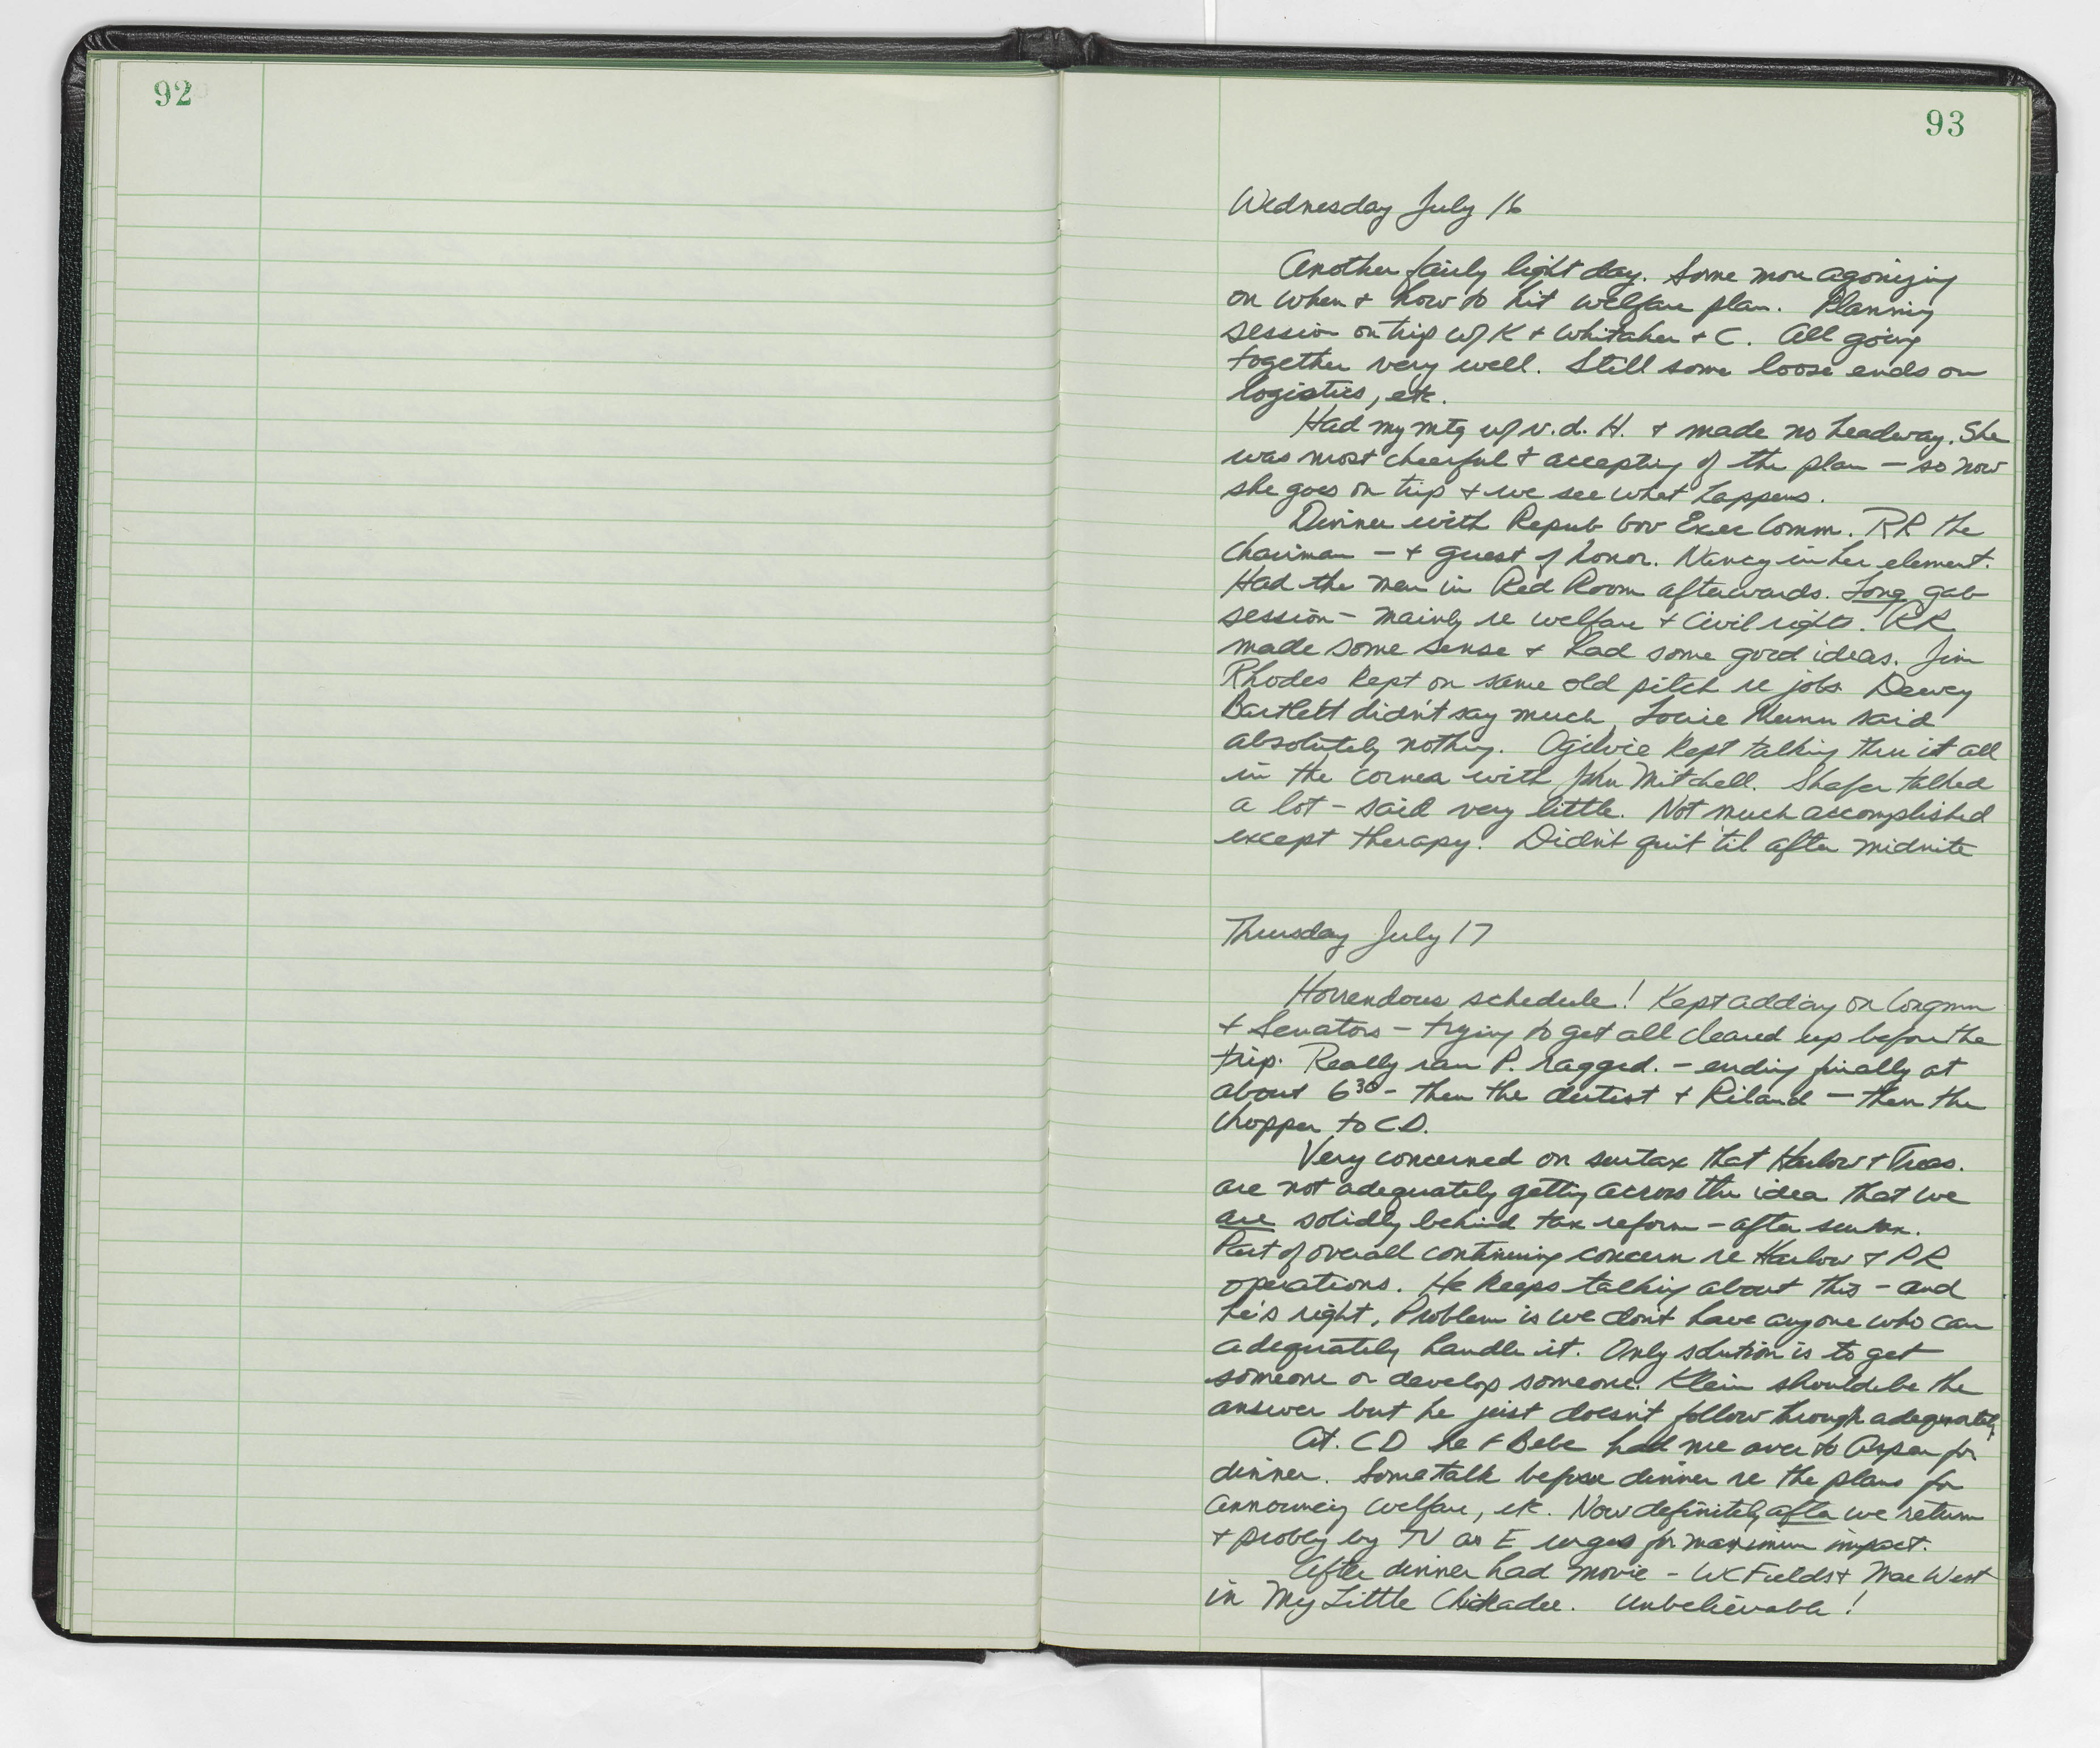 92
93
Wednesday July 16
Another fairly light day. Some more agonizing
on when + how to hit welfare plan. Planning
session on trip w/ K + Whitaker + C. All going
together very well. Still some loose ends on
logistics, etc.
Had my mtg w/ v.d. H. + made no headway. She
was most cheerful + accepting of the plan — so now
she goes on trip + we see what happens.
Dinner with Repub Gov Exec Comm. RR the
Chairman — + guest of honor. Nancy in her element.
Had the men in Red Room afterwards. Long gab
session - mainly re welfare + Civil rights. RR
made some sense + had some good ideas. Jim
Rhodes kept on same old pitch re jobs. Dewey
Bartlett didn't say much, Louie Nunn said
absolutely nothing. Ogilvie kept talking thru it all
in the corner with John Mitchell. Shafer talked
a lot - said very little. Not much accomplished
except therapy. Didn't quit 'til after midnite
Thursday July 17
Horrendous schedule! Kept adding on Congmn
+ Senators - trying to get all cleared up before the
trip. Really ran P. ragged. - ending finally at
about 6³⁰ - then the dentist + Riland — then the
chopper to CD.
Very concerned on surtax that Harlow + Treas.
are not adequately getting across the idea that we
are solidly behind tax reform - after surtax.
Part of overall continuing concern re Harlow + PR
operations. He keeps talking about this - and
he's right. Problem is we don't have anyone who can
adequately handle it. Only solution is to get
someone or develop someone. Klein should be the
answer but he just doesn't follow through adequately.
At. CD he + Bebe had me over to Aspen for
dinner. Some talk before dinner re the plans for
announcing welfare, etc. Now definitely after we return
+ probly by TV as E urges for maximum impact.
After dinner had movie - WC Fields + Mae West
in My Little Chickadee. Unbelievable!